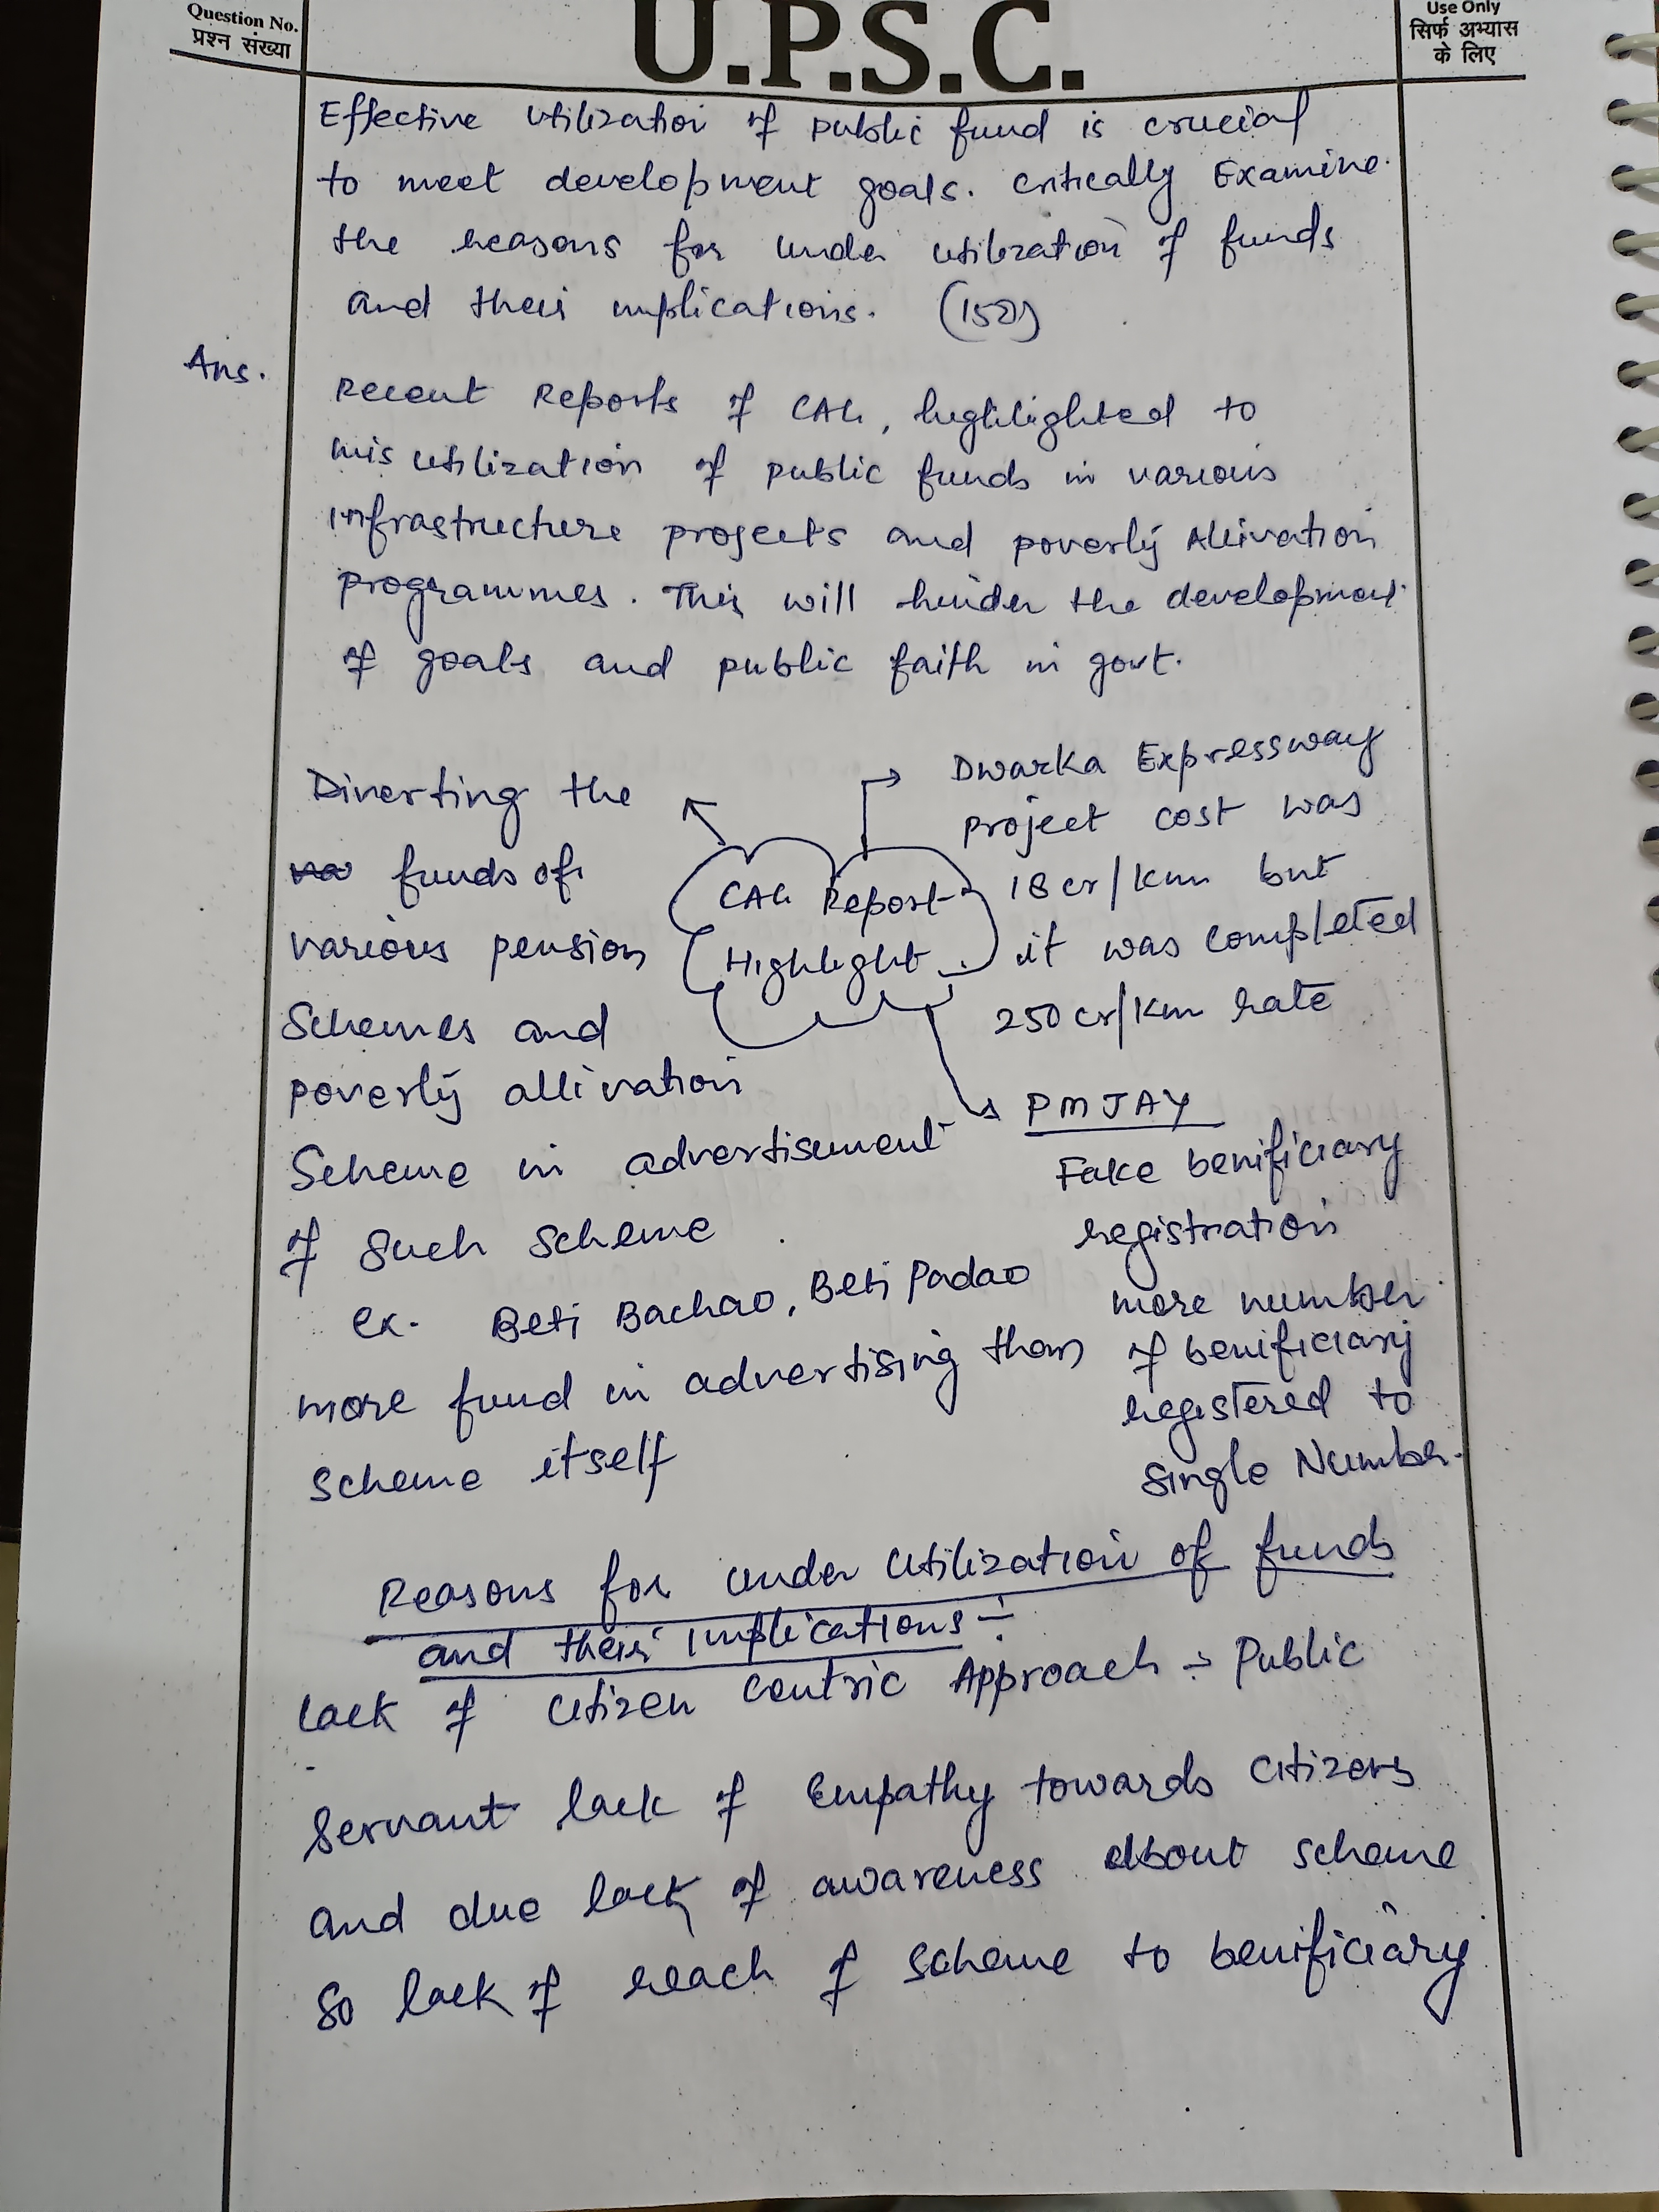 Question No.
प्रश्न संख्या
U.P.S.C.
Use Only
सिर्फ अभ्यास
के लिए
Effective utilization of public fund is crucial
to meet development goals. Critically Examine
the reasons for under utilization of funds
and their implications. (150)
Ans.
Recent Reports of CAG, highlighted to
mis utilization of public funds in various
infrastructure projects and poverty Allivation
programmes. This will hinder the development
of goals and public faith in govt.
CAG Report
Highlight
Diverting the
funds of
various pension
Schemes and
poverty allivation
Scheme in advertisement
of such scheme
ex. Beti Bachao, Beti Padao
more fund in advertising than
scheme itself
Dwarka Expressway
project cost was
18 cr/km but
it was completed
250 cr/km rate
PMJAY
Fake benificiary
registration
more number
of benificiary
registered to
single Number.
Reasons for under utilization of funds
and their implications:-
Lack of citizen centric Approach :- Public
Servant lack of empathy towards citizens
and due lack of awareness about scheme
so lack of reach of scheme to benificiary